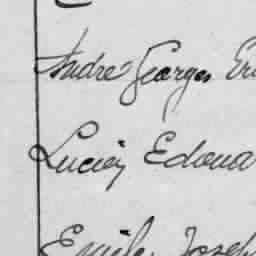 André Georges Er
Lucien Edoua
Emile Joseph